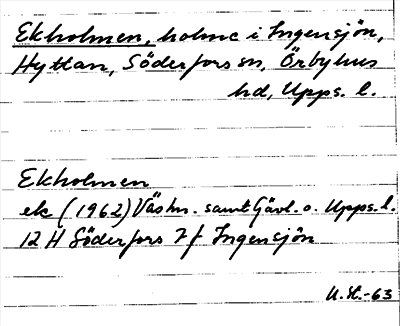 Ekholmen, holme i Ingensjön,
Hyttan, Söderfors sn, Örbyhus
hd, Upps. l.
Ekholmen
ek (1962) Väshn. samt Gävl. o. Upps. l.
12 H Söderfors 7 f Ingensjön
U. H. -63